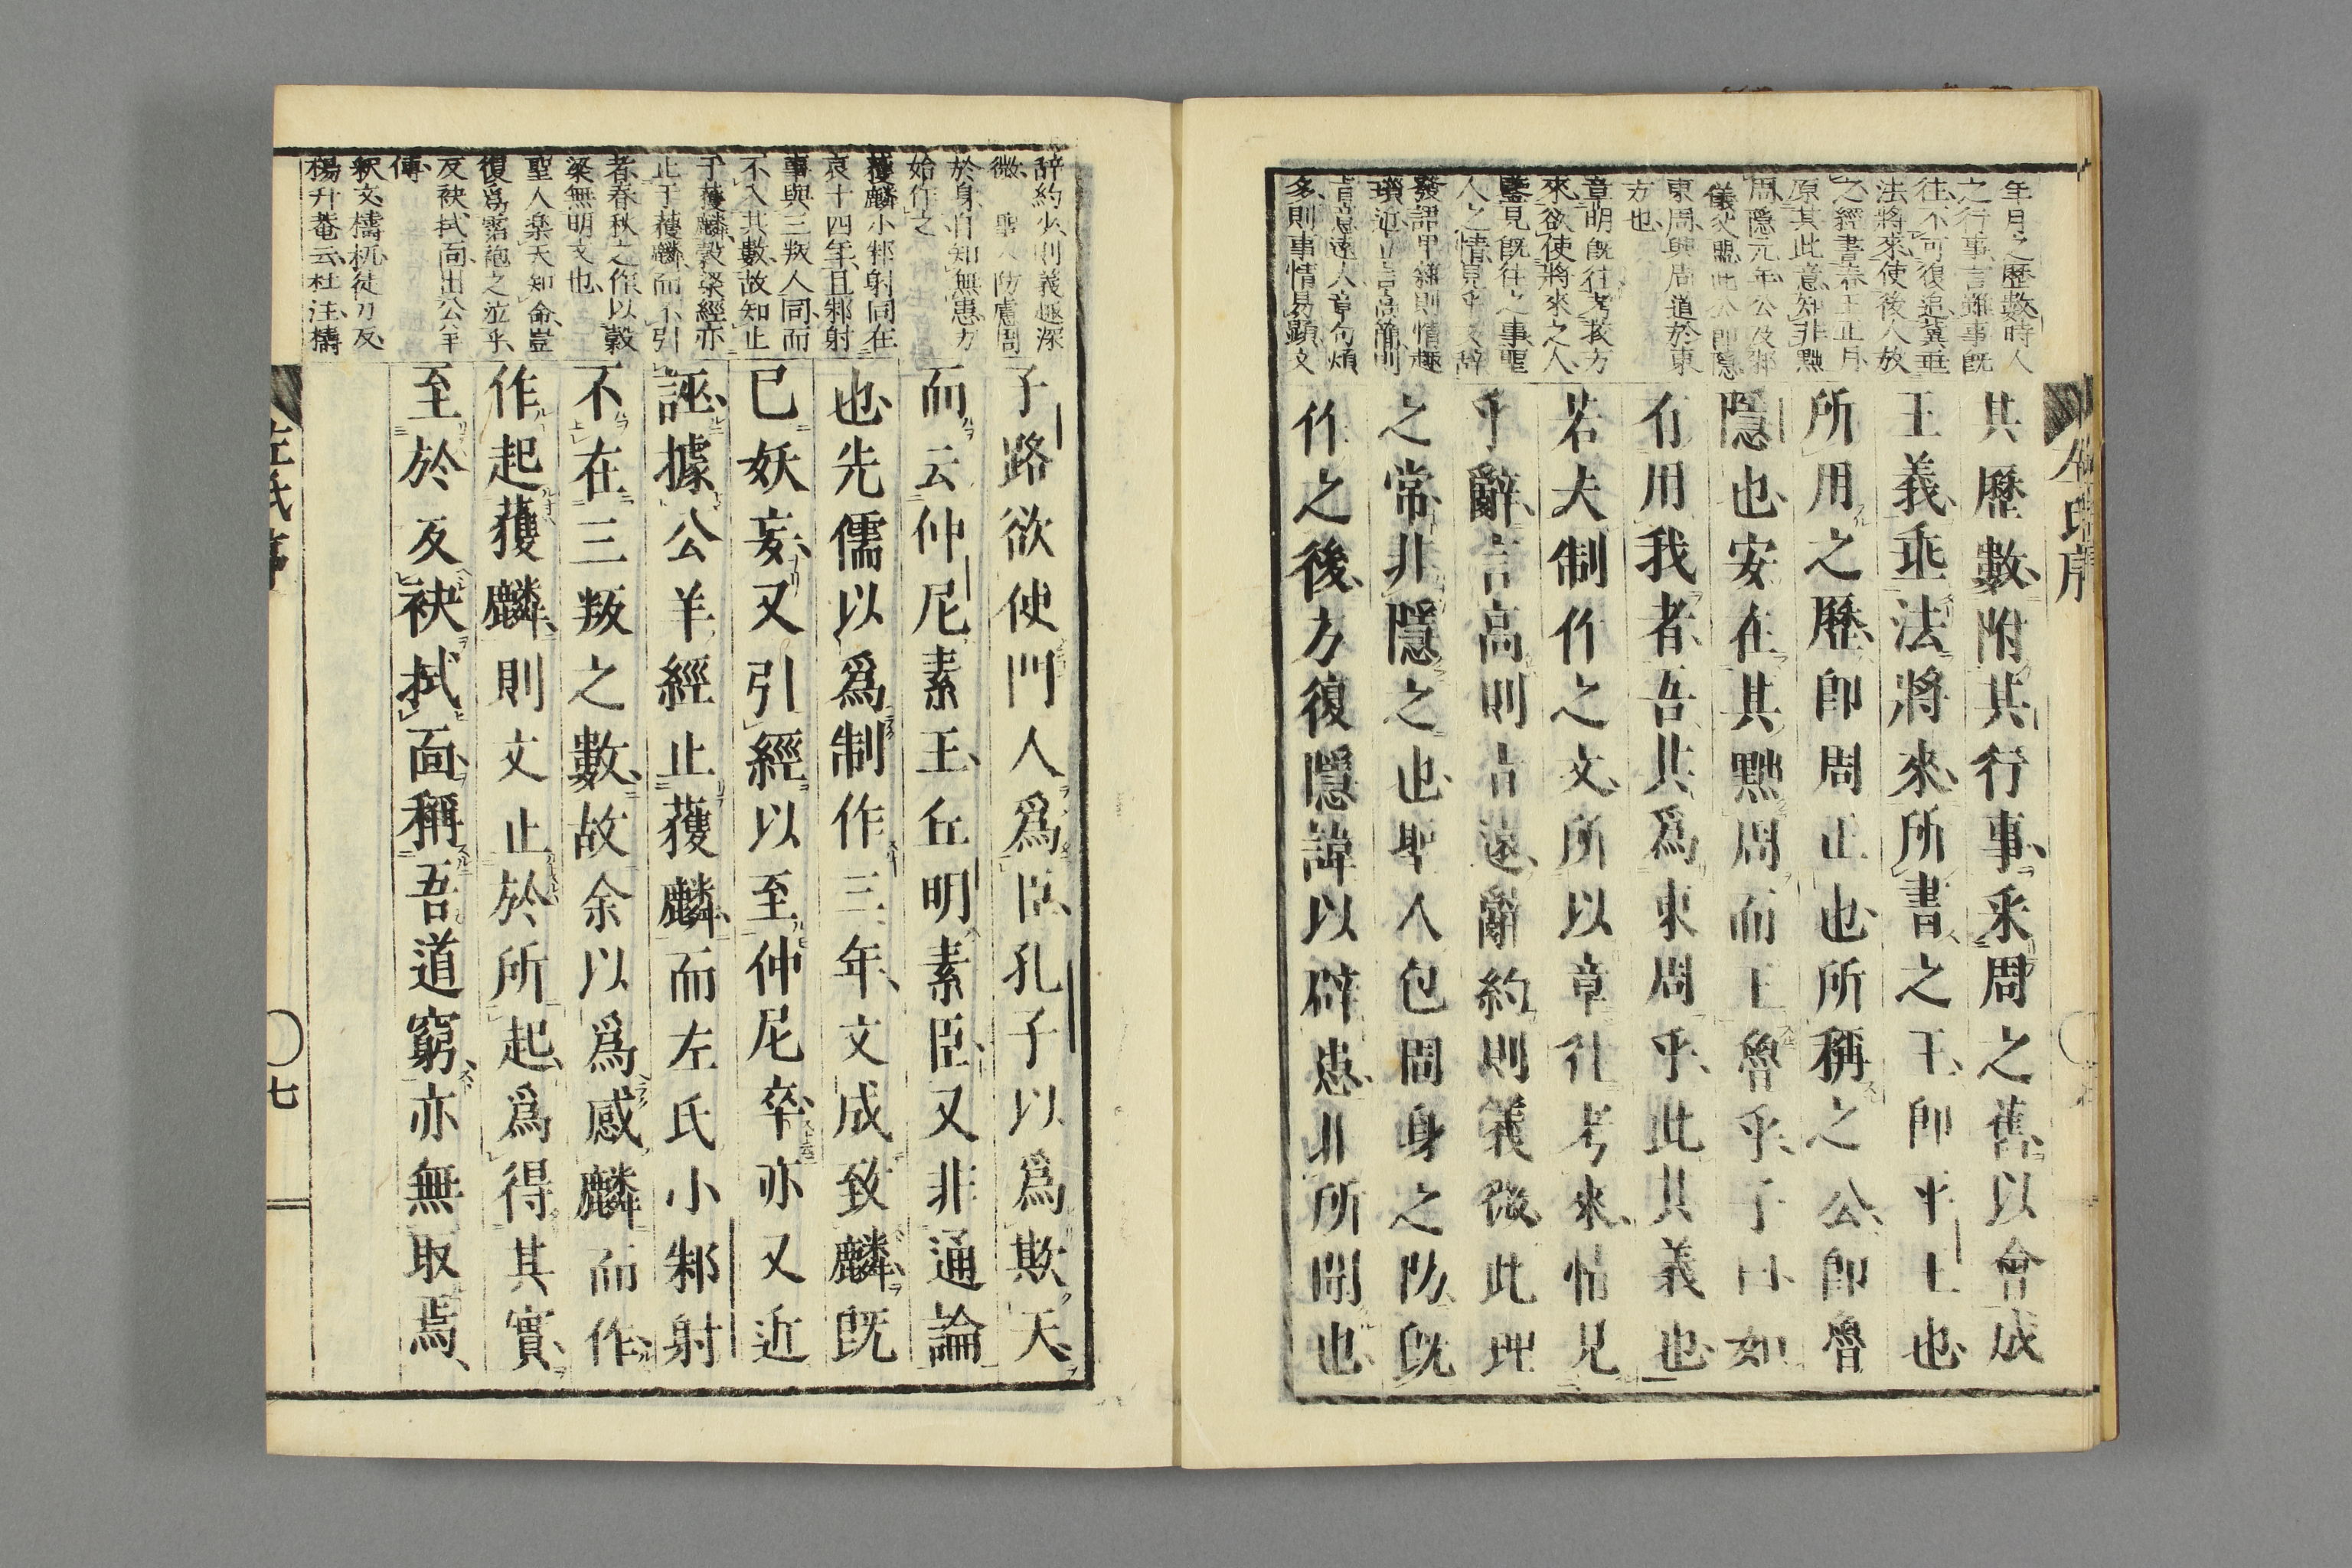 左氏序
年月之歷數時人
之行事言雖事既
往不可復追冀垂
法將來使後人放
之經書春王正月
原其此意知非黜
周隱元年公及邾
儀父盟此公即隱
東周興周道於東
方也
章明既往考校方
來欲使將來之人
鑒見既往之事聖
人之情見乎文辞
發語卑雜則情趣
瑣近立言高簡則
旨意遠人章句煩
多則事情易顯文
其歷數附其行事釆周之舊以會成
王義垂法將來所書之王即平王也
所用之歷即周正也所稱之公即魯
隱也安在其黜周而王魯乎子曰如
有用我者吾其爲東周乎此其義也
若夫制作之文所以章往考來情見
乎辭言高則旨遠辭約則義微此理
之常非隱之也聖人包周身之防既
作之後方復隱諱以辟患非所聞也
辞約少則義趣深
微 聖人防慮周
於身自知無患方
始作之
獲麟小邾射同在
哀十四年且邾射
事與三叛人同而
不入其數故知止
于獲麟穀梁經亦
止于獲麟而不引
者春秋之作以穀
梁無明文也
聖人楽天知命豈
復爲霑袍之泣乎
反袂拭面出公羊
傳
釈文檮杌徒刀反
楊升菴云杜注檮
子路欲使門人爲臣孔子以爲欺天
而云仲尼素王丘明素臣又非通論
也先儒以爲制作三年文成致麟既
已妖妄又引經以至仲尼卒亦又近
誣據公羊經止獲麟而左氏小邾射
不在三叛之數故余以爲感麟而作
作起獲麟則文止於所起爲得其實
至於反袂拭面稱吾道窮亦無取焉
左氏序
七